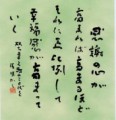 感謝の心が
高まれば高まるほど
それに正比例して
幸福感が高まって
いく